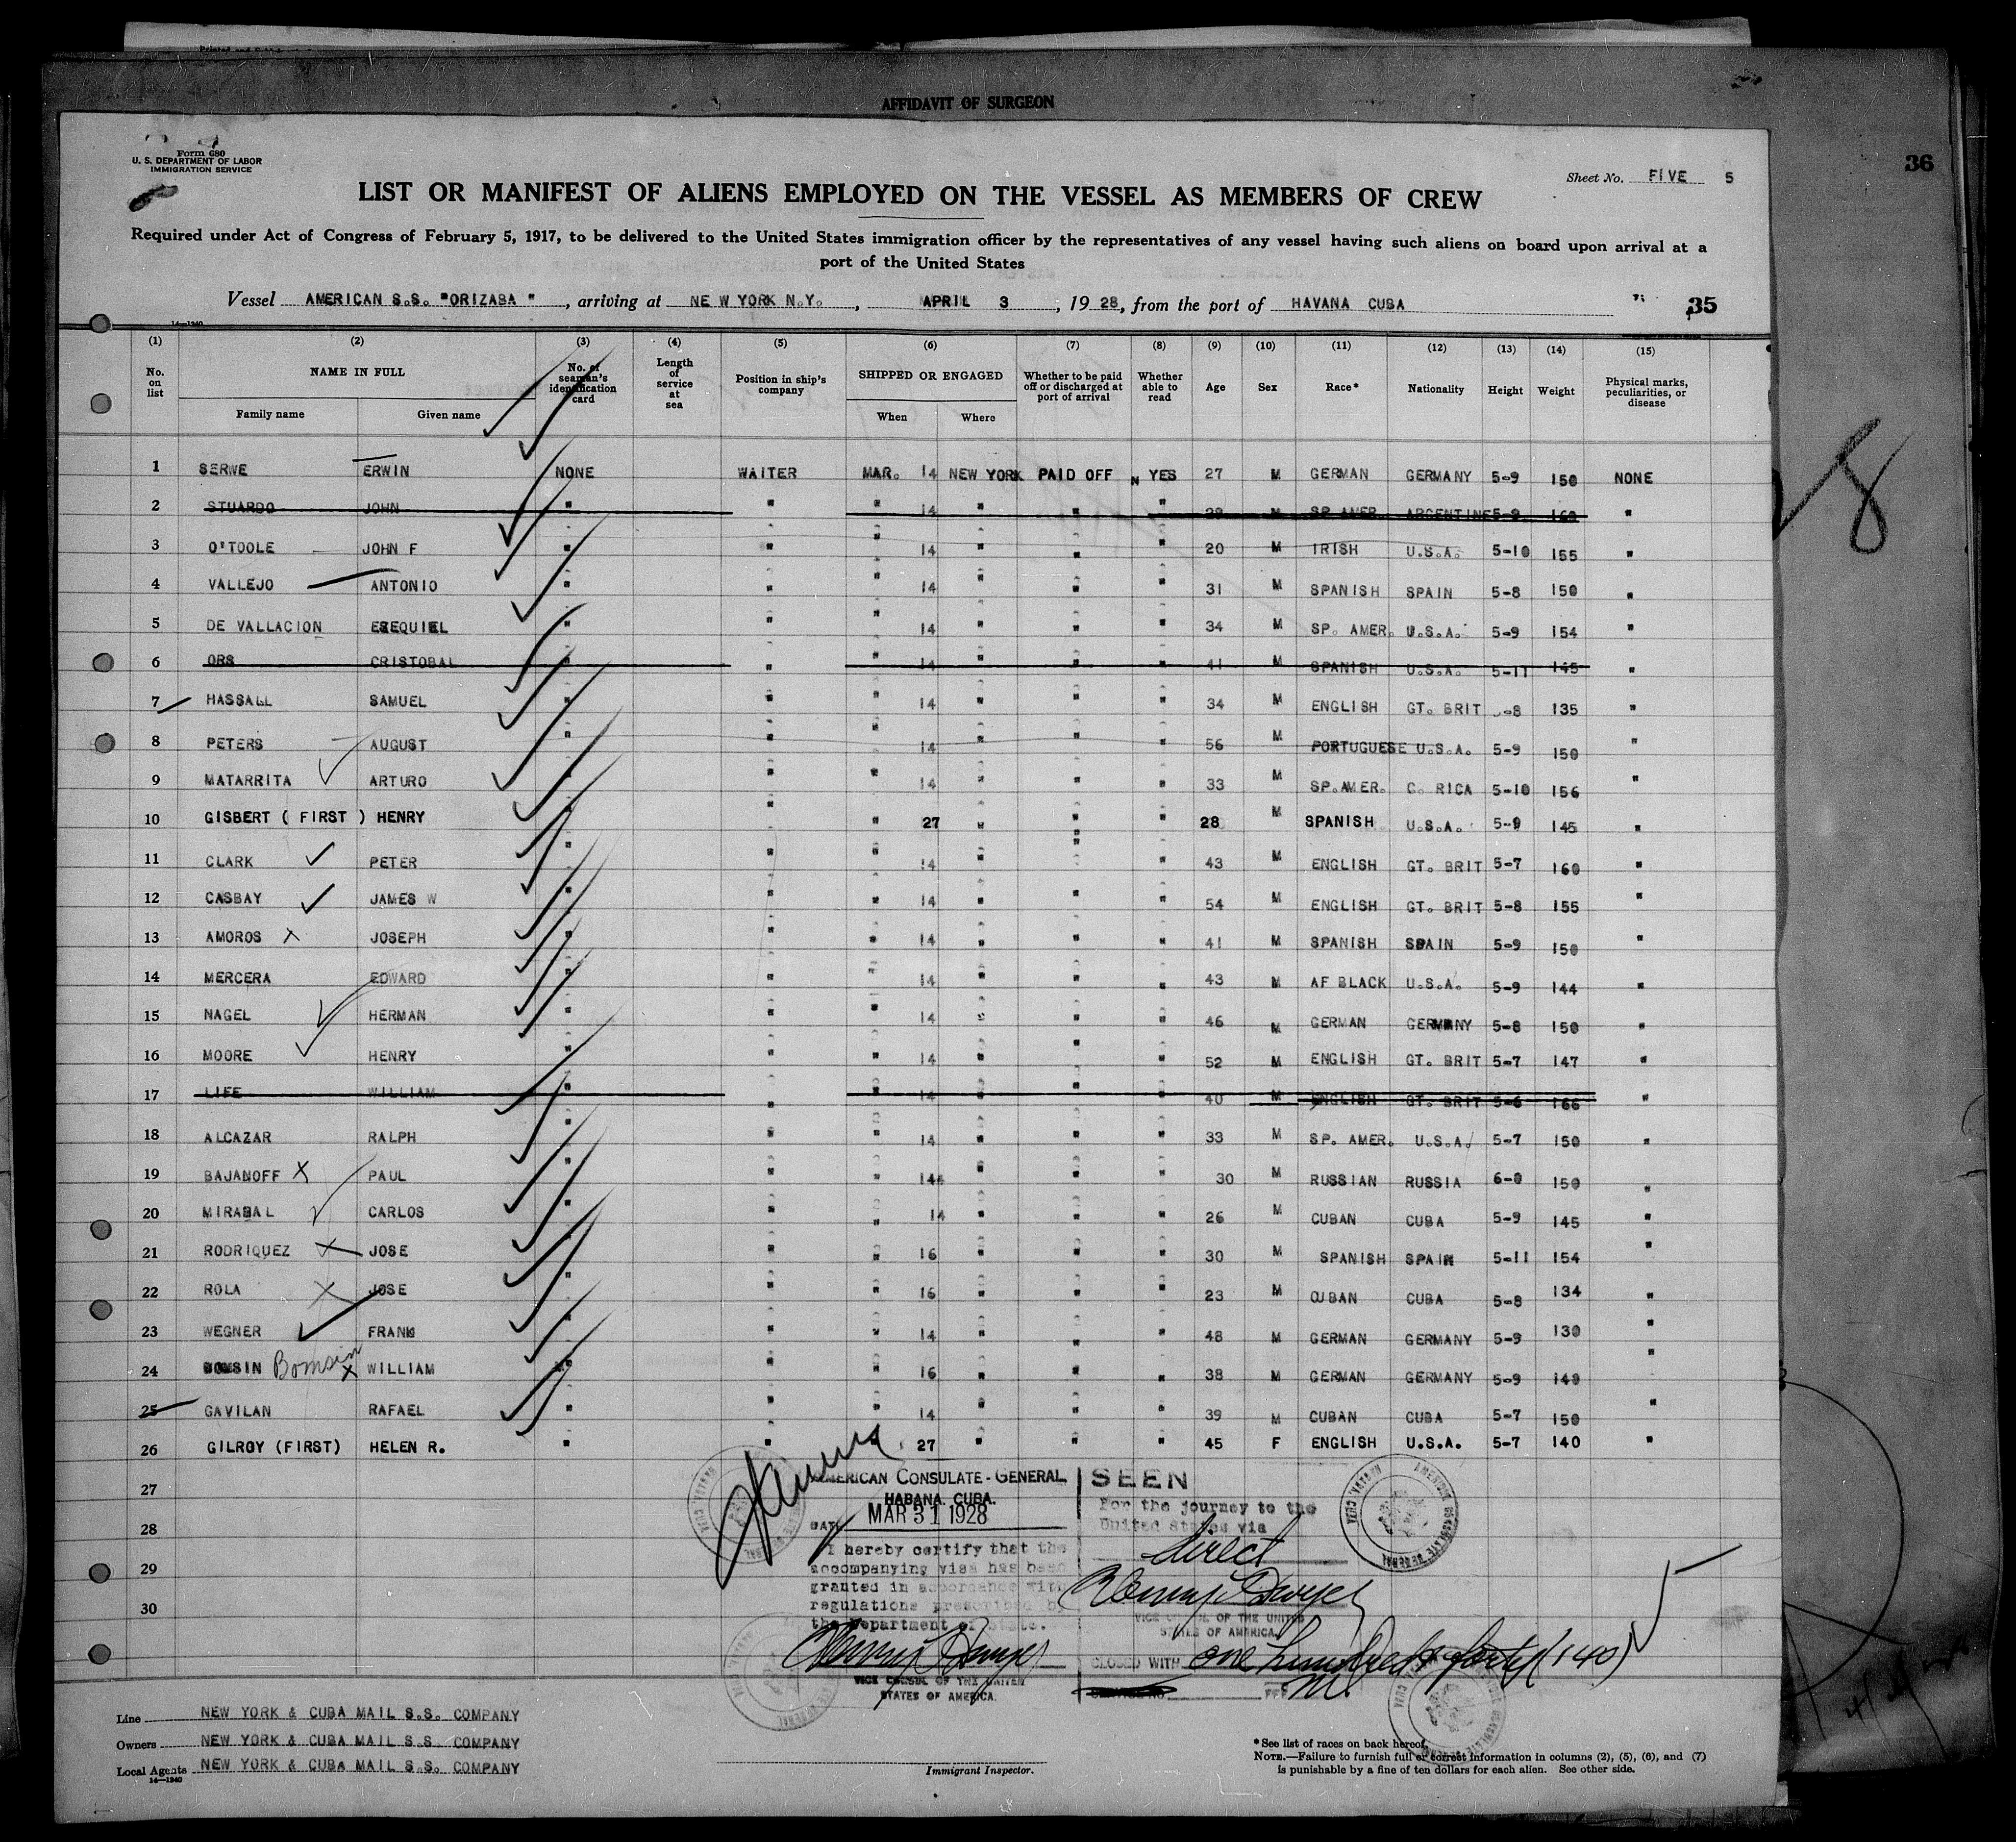 AFFIDAVIT OF SURGEON
36
Form 680
U. S. DEPARTMENT OF LABOR
IMMIGRATION SERVICE
Sheet No. FIVE 5
LIST OR MANIFEST OF ALIENS EMPLOYED ON THE VESSEL AS MEMBERS OF CREW
Required under Act of Congress of February 5, 1917, to be delivered to the United States immigration officer by the representatives of any vessel having such aliens on board upon arrival at a
port of the United States
Vessel AMERICAN S.S. "ORIZABA", arriving at NEW YORK N.Y., APRIL 3, 1928, from the port of HAVANA CUBA 35
14—1240
(1) (2) (3) (4) (5) (6) (7) (8) (9) (10) (11) (12) (13) (14) (15)
No. on list NAME IN FULL No. of seaman's identification card Length of service at sea Position in ship's company SHIPPED OR ENGAGED Whether to be paid off or discharged at port of arrival Whether able to read Age Sex Race* Nationality Height Weight Physical marks, peculiarities, or disease
Family name Given name When Where
1 SERWE ERWIN NONE WAITER MAR. 14 NEW YORK PAID OFF YES 27 M GERMAN GERMANY 5-9 150 NONE
2 STUARDO JOHN " " " 14 " " " 29 M SP AMER. ARGENTINE 5-9 160 "
3 O'TOOLE JOHN F " " " 14 " " " 20 M IRISH U.S.A. 5-10 155 "
4 VALLEJO ANTONIO " " " 14 " " " 31 M SPANISH SPAIN 5-8 150 "
5 DE VALLACION EZEQUIEL " " " 14 " " " 34 M SP. AMER. U.S.A. 5-9 154 "
6 ORS CRISTOBAL " " " 14 " " " 41 M SPANISH U.S.A. 5-11 145 "
7 HASSALL SAMUEL " " " 14 " " " 34 M ENGLISH GT. BRIT -8 135 "
8 PETERS AUGUST " " " 14 " " " 56 M PORTUGUESE U.S.A. 5-9 150 "
9 MATARRITA ARTURO " " " 14 " " " 33 M SP.AMER. C. RICA 5-10 156 "
10 GISBERT ( FIRST ) HENRY " " " 27 " " " 28 M SPANISH U.S.A. 5-9 145 "
11 CLARK PETER " " " 14 " " " 43 M ENGLISH GT. BRIT 5-7 160 "
12 CASBAY JAMES W " " " 14 " " " 54 M ENGLISH GT. BRIT 5-8 155 "
13 AMOROS JOSEPH " " " 14 " " " 41 M SPANISH SPAIN 5-9 150 "
14 MERCERA EDWARD " " " 14 " " " 43 M AF BLACK U.S.A. 5-9 144 "
15 NAGEL HERMAN " " " 14 " " " 46 M GERMAN GERMANY 5-8 150 "
16 MOORE HENRY " " " 14 " " " 52 M ENGLISH GT. BRIT 5-7 147 "
17 LIFE WILLIAM " " " 14 " " " 40 M ENGLISH GT. BRIT 5-6 166 "
18 ALCAZAR RALPH " " " 14 " " " 33 M SP. AMER. U.S.A. 5-7 150 "
19 BAJANOFF PAUL " " " 14 " " " 30 M RUSSIAN RUSSIA 6-0 150 "
20 MIRABAL CARLOS " " " 14 " " " 26 M CUBAN CUBA 5-9 145 "
21 RODRIQUEZ JOSE " " " 16 " " " 30 M SPANISH SPAIN 5-11 154 "
22 ROLA JOSE " " " 16 " " " 23 M CUBAN CUBA 5-8 134 "
23 WEGNER FRANK " " " 14 " " " 48 M GERMAN GERMANY 5-9 130 "
24 BOMSIN Bomsin WILLIAM " " " 16 " " " 38 M GERMAN GERMANY 5-9 149 "
25 GAVILAN RAFAEL " " " 14 " " " 39 M CUBAN CUBA 5-7 150 "
26 GILROY (FIRST) HELEN R. " " " 27 " " " 45 F ENGLISH U.S.A. 5-7 140 "
27
28
29
30
AMERICAN CONSULATE-GENERAL
HABANA, CUBA.
DATE MAR 31 1928
I hereby certify that the
accompanying visa has been
granted in accordance with
regulations prescribed by
the Department of State.
VICE CONSUL OF THE UNITED
STATES OF AMERICA.
SEEN
For the journey to the
United States via
direct
VICE CONSUL OF THE UNITED
STATES OF AMERICA.
CLOSED WITH one hundred & forty (140)
Line NEW YORK & CUBA MAIL S.S. COMPANY
Owners NEW YORK & CUBA MAIL S.S. COMPANY
Local Agents NEW YORK & CUBA MAIL S.S. COMPANY
14—1240
Immigrant Inspector.
*See list of races on back hereof.
NOTE.—Failure to furnish full or correct information in columns (2), (5), (6), and (7)
is punishable by a fine of ten dollars for each alien. See other side.